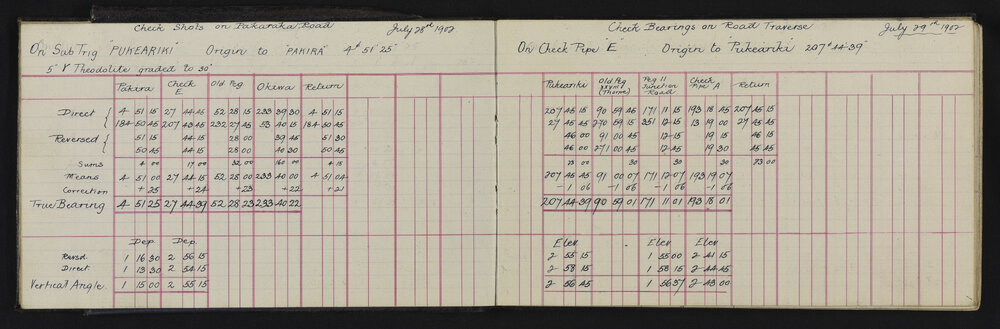 Check Shots on Pakaraka Road July 28th 1902
On Sub Trig "PUKEARIKI" Origin to "PAKIRA" 4° 51' 25"
5" V Theodolite graded to 30"
Pakira Check E Old Peg Okiwa Return
Direct { 4 51 15 27 44 45 52 28 15 233 39 30 4 51 15
184 50 45 207 43 45 232 27 45 53 40 15 184 50 45
Reversed { 51 15 44 15 28 00 39 45 51 30
50 45 44 15 28 00 40 30 50 45
Sums 4 00 17 00 32 00 160 00 4 15
Means 4 51 00 27 44 15 52 28 00 233 40 00 4 51 04
Correction + 25 + 24 + 23 + 22 + 21
True Bearing 4 51 25 27 44 39 52 28 23 233 40 22
Dep. Dep.
Revsd. 1 16 30 2 56 15
Direct 1 13 30 2 54 15
Vertical Angle. 1 15 00 2 55 15
Check Bearings on Road Traverse July 29th 1902
On Check Pipe "E" Origin to "Pukeariki" 207° 44' 39"
Pukeariki Old Peg (Thorne) Peg 11 Junction Road Check Pipe A Return
207 45 15 90 59 45 171 11 15 193 18 45 207 45 15
27 45 45 270 59 15 351 12 15 13 19 00 27 45 45
46 00 91 00 45 12 15 19 15 46 15
46 00 271 00 45 12 45 19 30 45 45
13 00 30 30 30 73 00
207 45 45 91 00 07 171 12 07 193 19 07
- 1 06 - 1 06 - 1 06 - 1 06
207 44 39 90 59 01 171 11 01 193 18 01
Elev Elev Elev
2 55 15 1 55 00 2 41 15
2 58 15 1 58 15 2 44 45
2 56 45 1 56 37 2 43 00